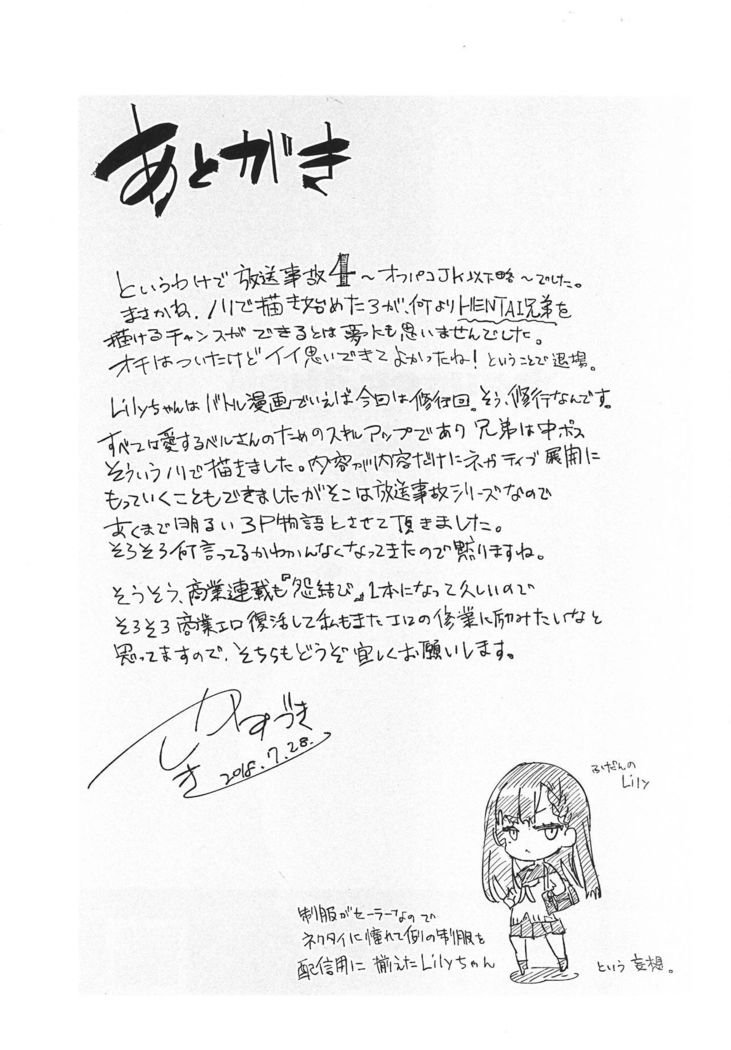 あとがき
というわけで放送事故4〜オフパコJK以下略〜でした。
まさかね、ノリで描き始めたころが、何よりHENTAI兄弟を
描けるチャンスができるとは夢にも思いませんでした。
オチはついたけどイイ思いできてよかったね!ということで退場。
Lilyちゃんはバトル漫画でいえば今回は修行回。そう、修行なんです。
すべては愛するベルさんのためのスキルアップであり兄弟は中ボス
そういうノリで描きました。内容が内容だけにネガティブ展開に
もっていくこともできましたがそこは放送事故シリーズなので
あくまで明るい3P物語とさせて頂きました。
そろそろ何言ってるかわかんなくなってきたので黙りますね。
そうそう、商業連載も『怨結び』1本になって久しいので
そろそろ商業エロ復活して私もまたエロの修業に励みたいなと
思ってますので、そちらもどうぞ宜しくお願いします。
かずづき
2018.7.28.
ふだんの
Lily
制服がセーラーなので
ネクタイに憧れて例の制服を
配信用に揃えたLilyちゃん
という妄想。